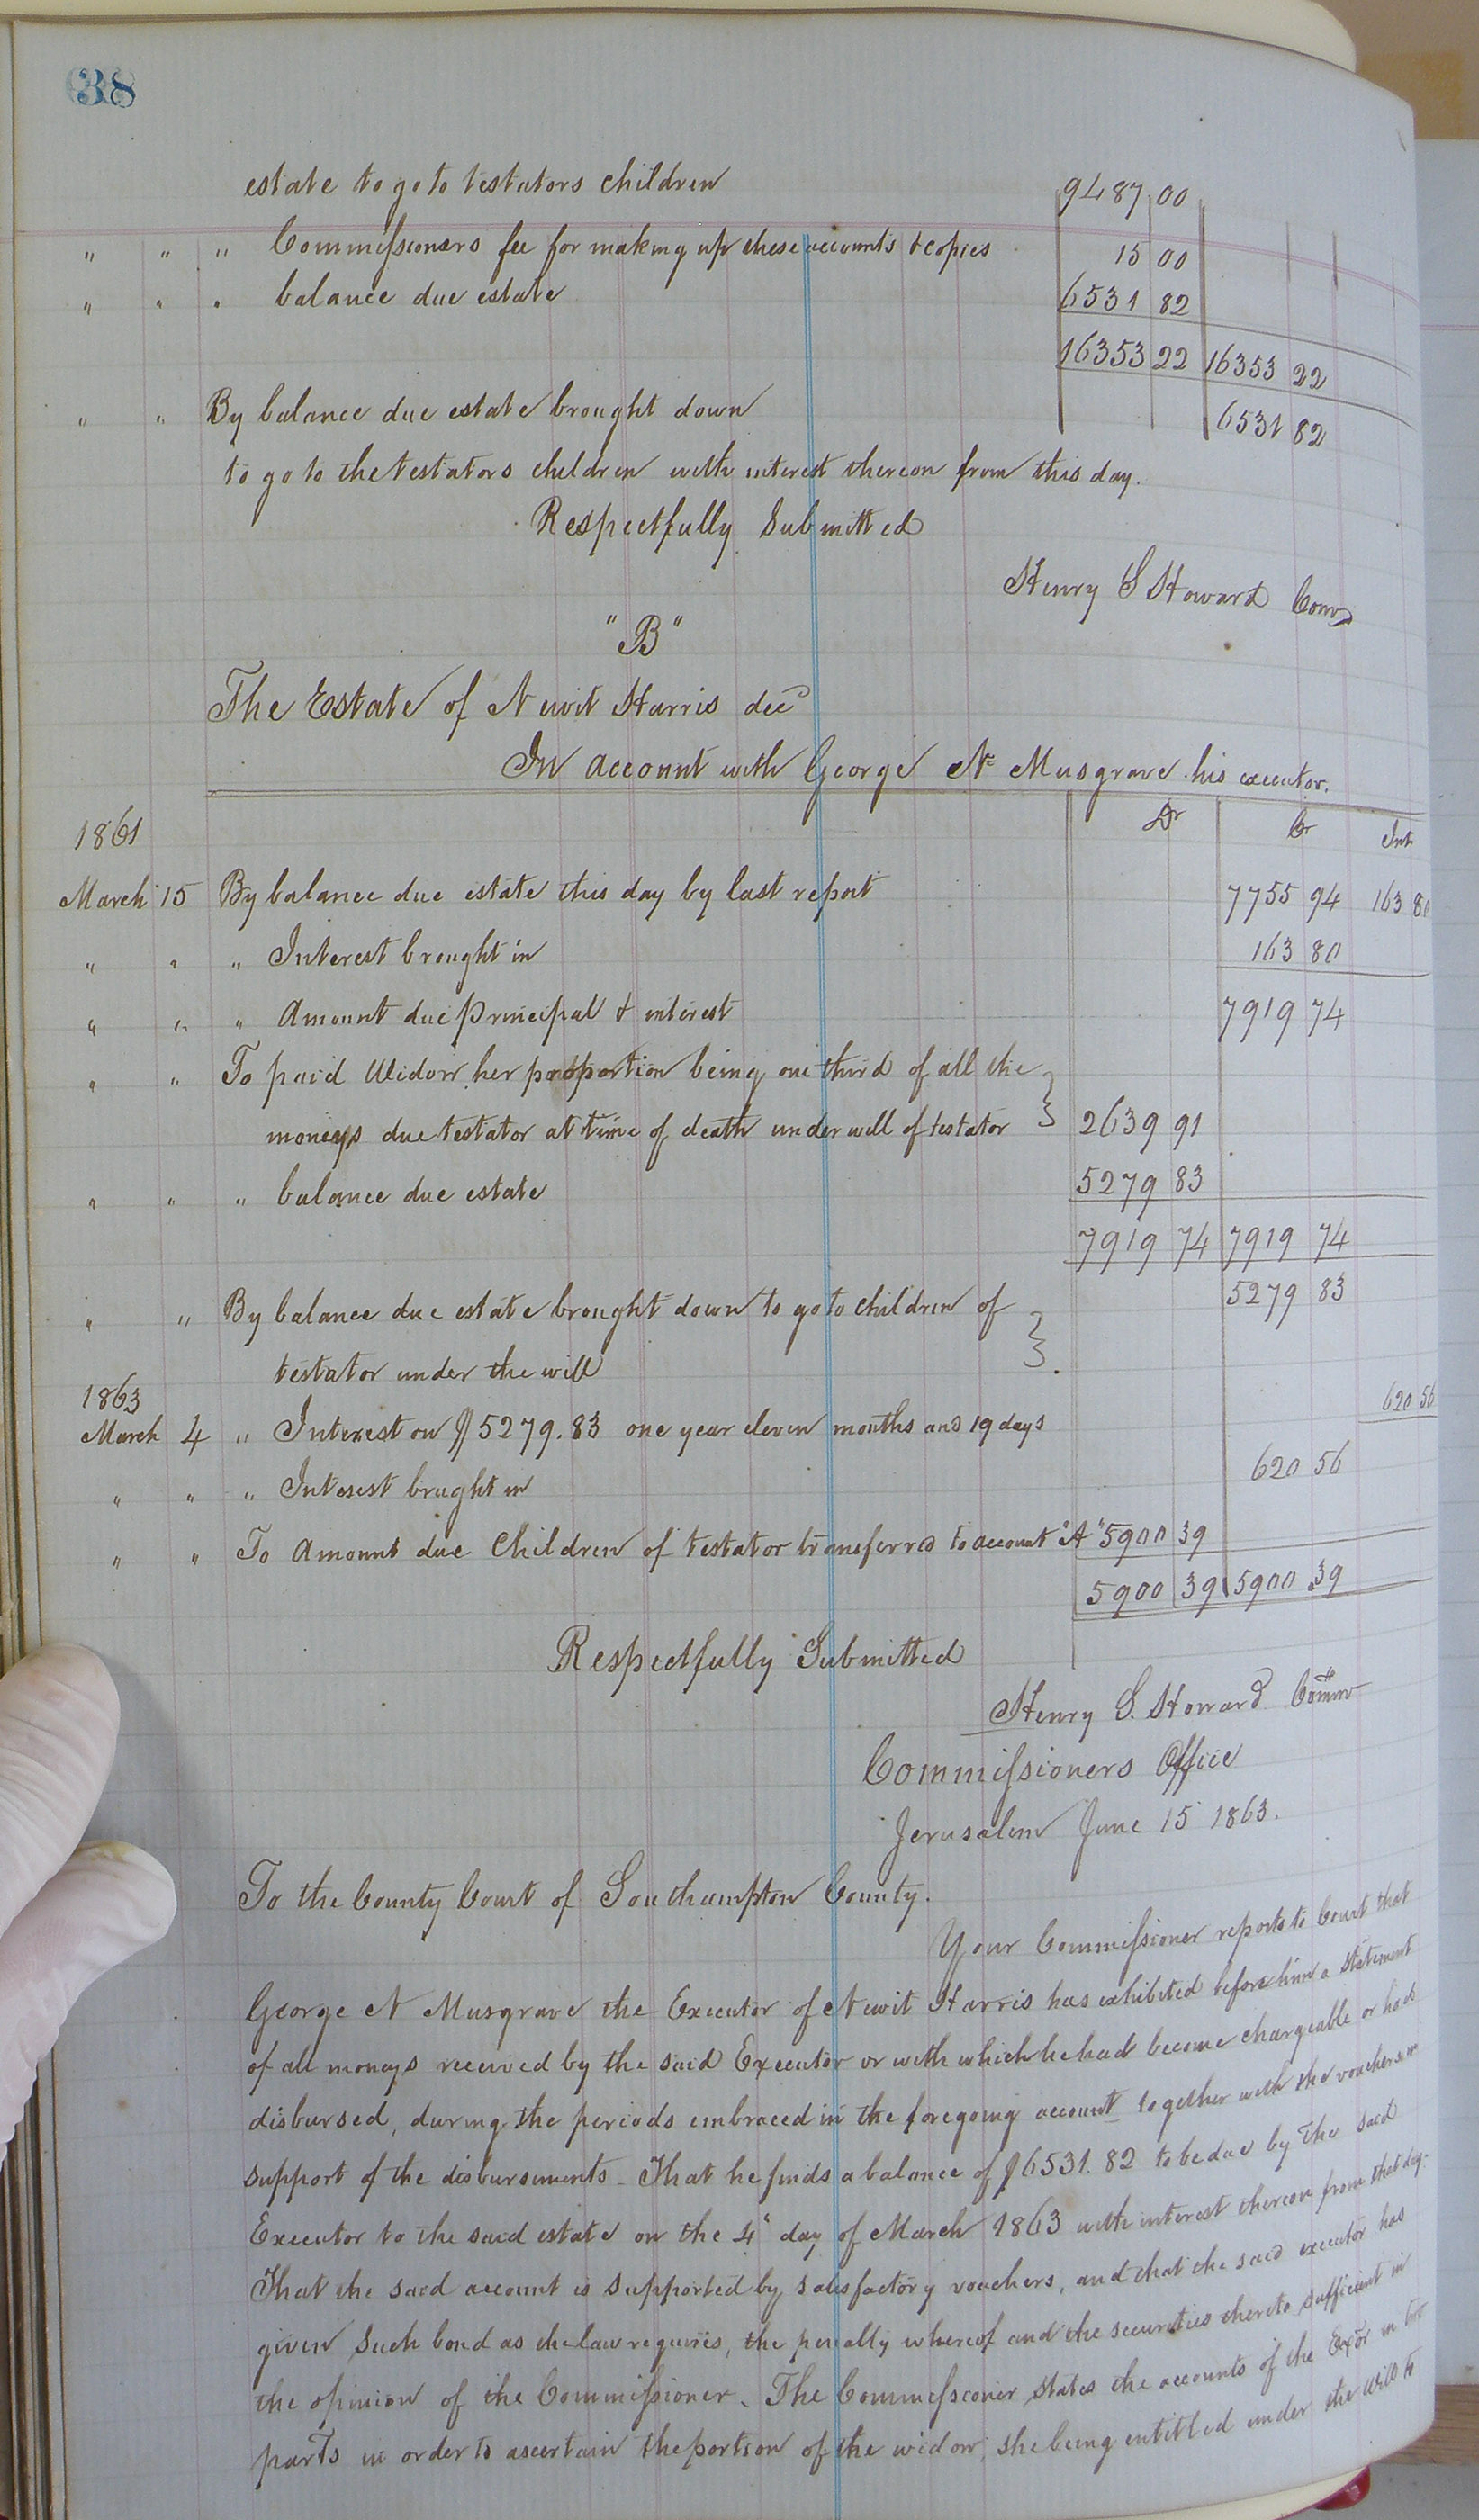 38
estate to go to testators children 9487 00
" " " Commissioners fee for making up these accounts & copies 15 00
" " " balance due estate 6531 82
16353 22 16353 22
" " By balance due estate brought down 6531 82
to go to the testators children with interest thereon from this day.
Respectfully Submitted
Henry S Howard Comr
"B"
The Estate of Newit Harris decd
In account with George N Musgrave his executor.
1861 Dr Cr Int
March 15 By balance due estate this day by last report 7755 94 163 80
" " " Interest brought in 163 80
" " " Amount due Principal & interest 7919 74
" " To paid Widow her proportion being one third of all the
moneys due testator at time of death under will of testator 2639 91
" " " balance due estate 5279 83
7919 74 7919 74
" " By balance due estate brought down to go to children of 5279 83
testator under the will
1863
March 4 " Interest on $5279.83 one year eleven months and 19 days 620 56
" " " Interest brught in 620 56
" " To Amount due Children of testator transferred to account "A" 5900 39
5900 39 5900 39
Respectfully Submitted
Henry S. Howard Commr
Commissioners Office
Jerusalem June 15 1863.
To the County Court of Southampton County.
Your Commissioner reports to Court that
George N Musgrave the Executor of Newit Harris has exhibited before him a statement
of all moneys received by the said Executor or with which he had become chargeable or had
disbursed, during the periods embraced in the foregoing account together with the vouchers in
support of the disbursements - That he finds a balance of $6531.82 to be due by the said
Executor to the said estate on the 4" day of March 1863 with interest thereon from that day.
That the said account is supported by satisfactory vouchers, and that the said executor has
given such bond as the law requires, the penalty whereof and the securities thereto sufficient in
the opinion of the Commissioner. The Commissioner states the accounts of the Exor in two
parts in order to ascertain the portion of the widow, she being entitled under the will to